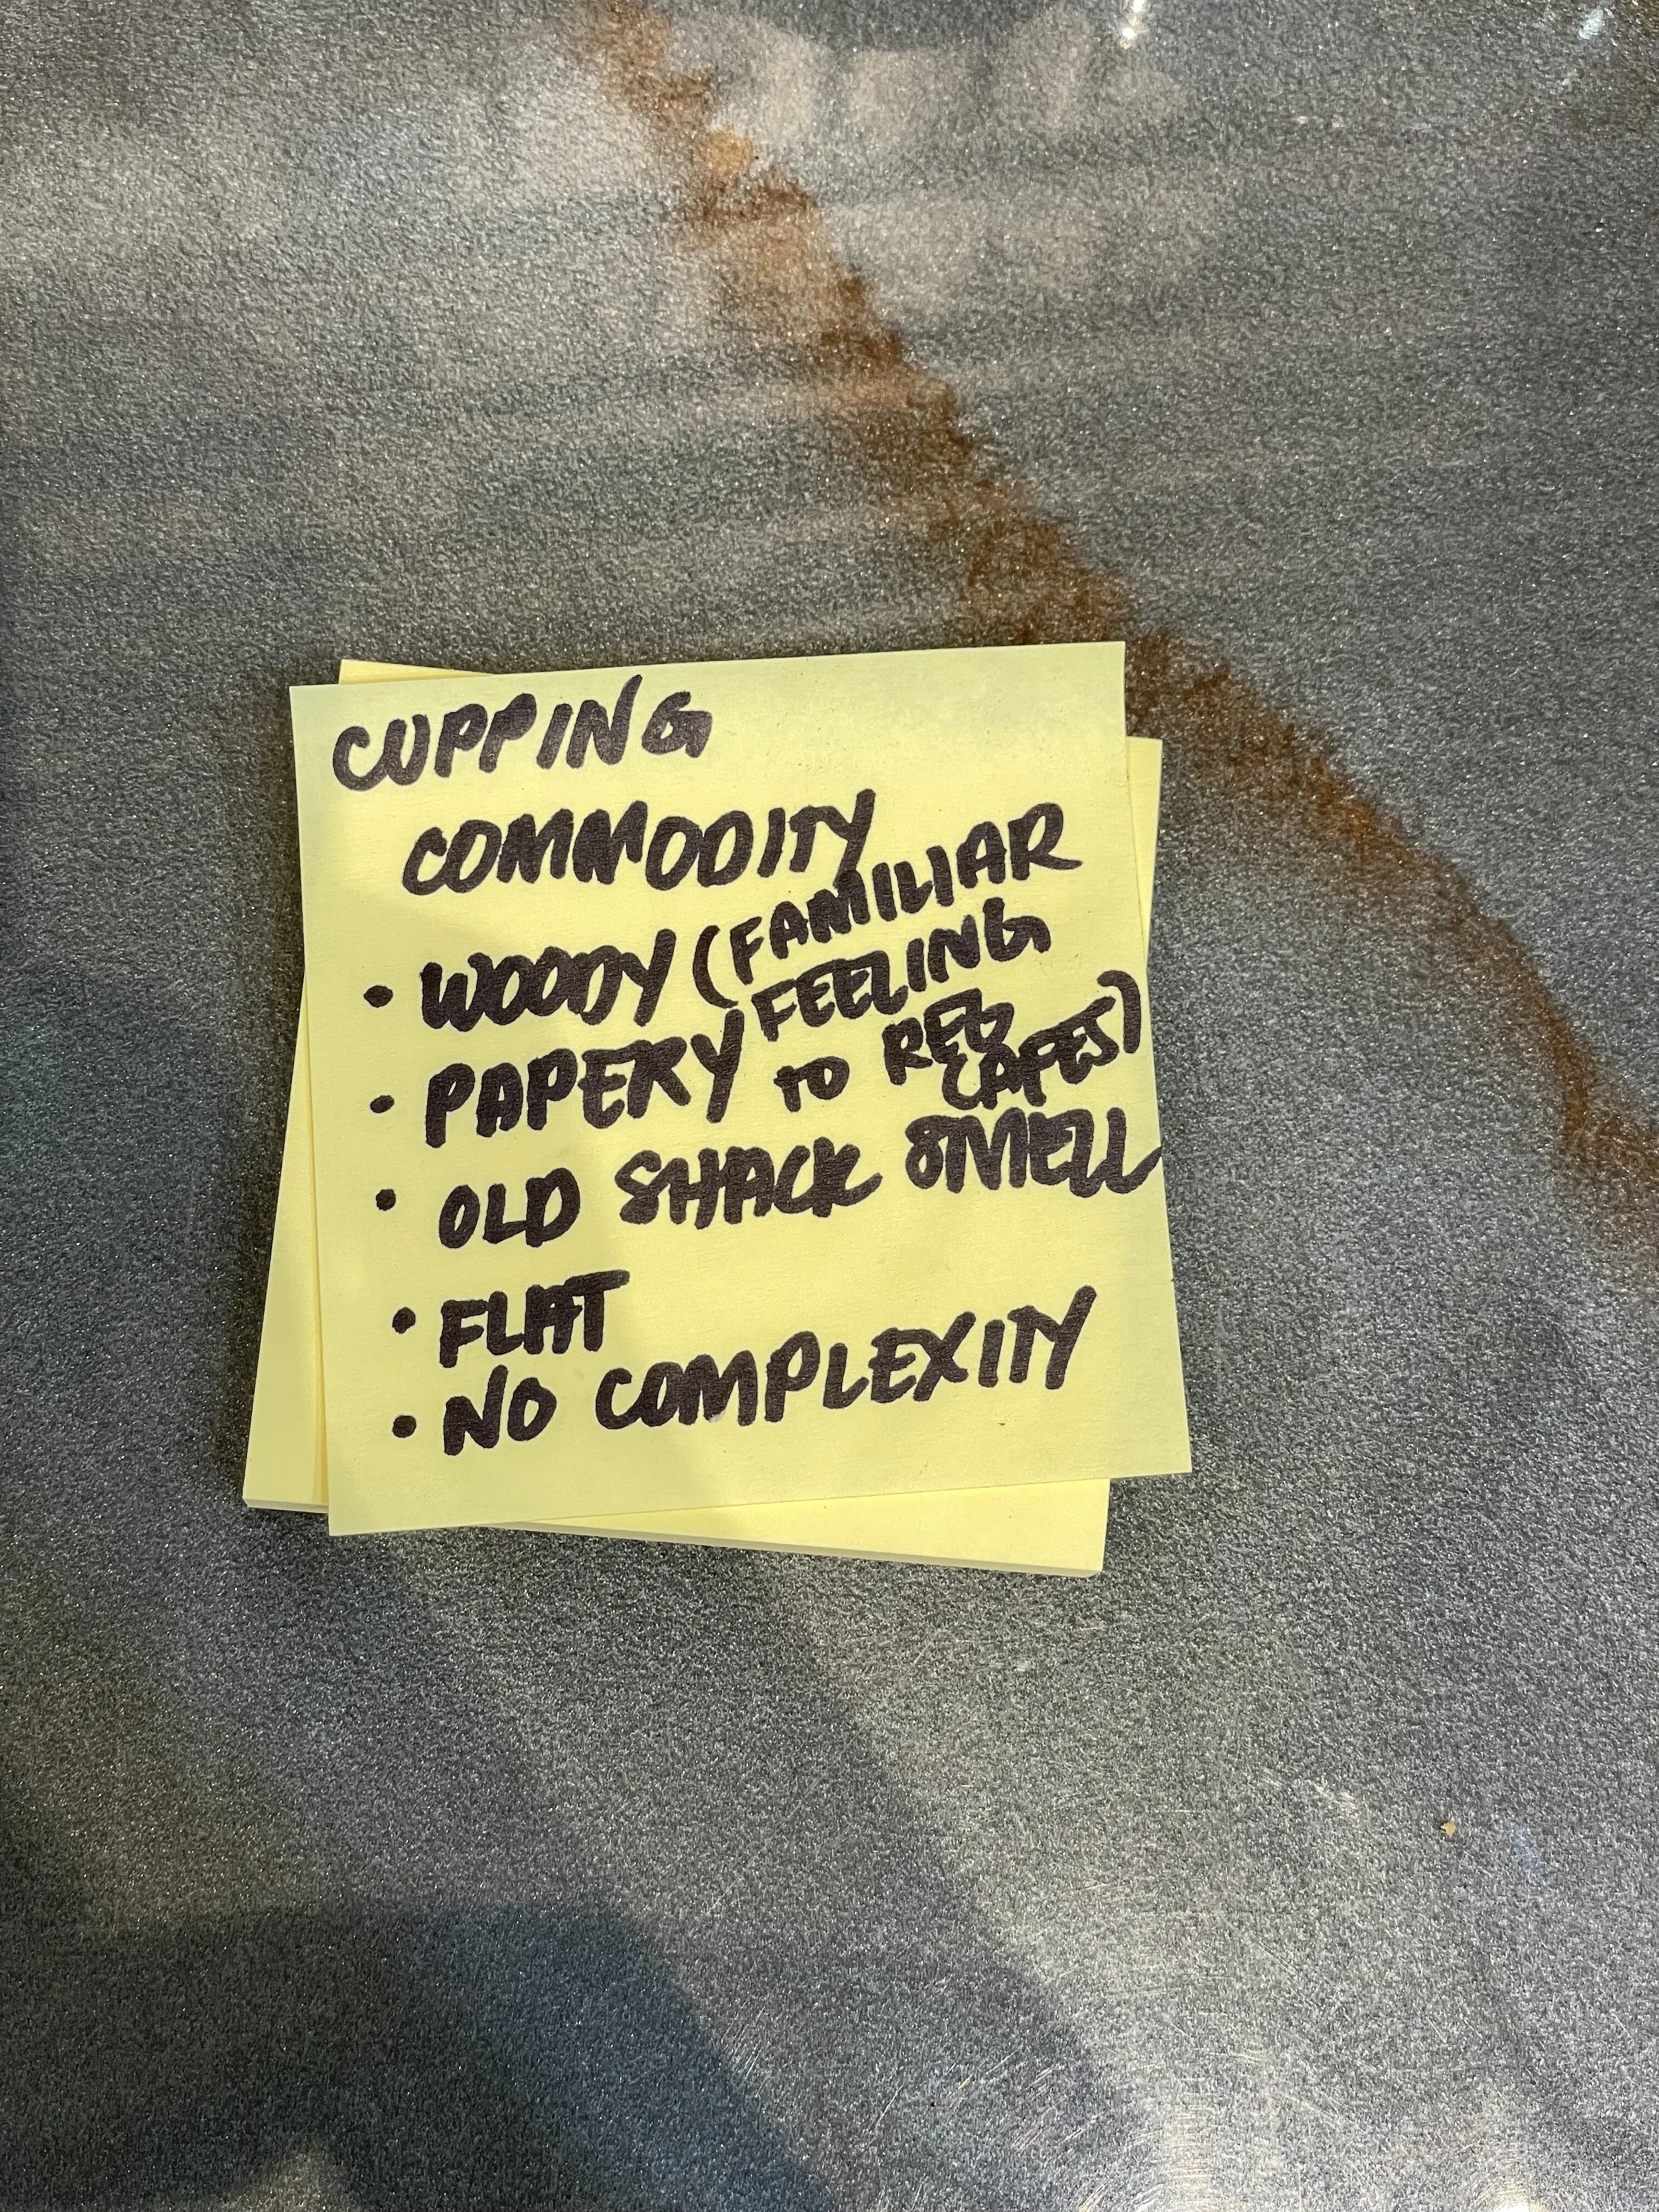 CUPPING
COMMODITY
• WOODY (FAMILIAR
FEELING
• PAPERY TO REG
CAFES)
• OLD SHACK SMELL
• FLAT
• NO COMPLEXITY